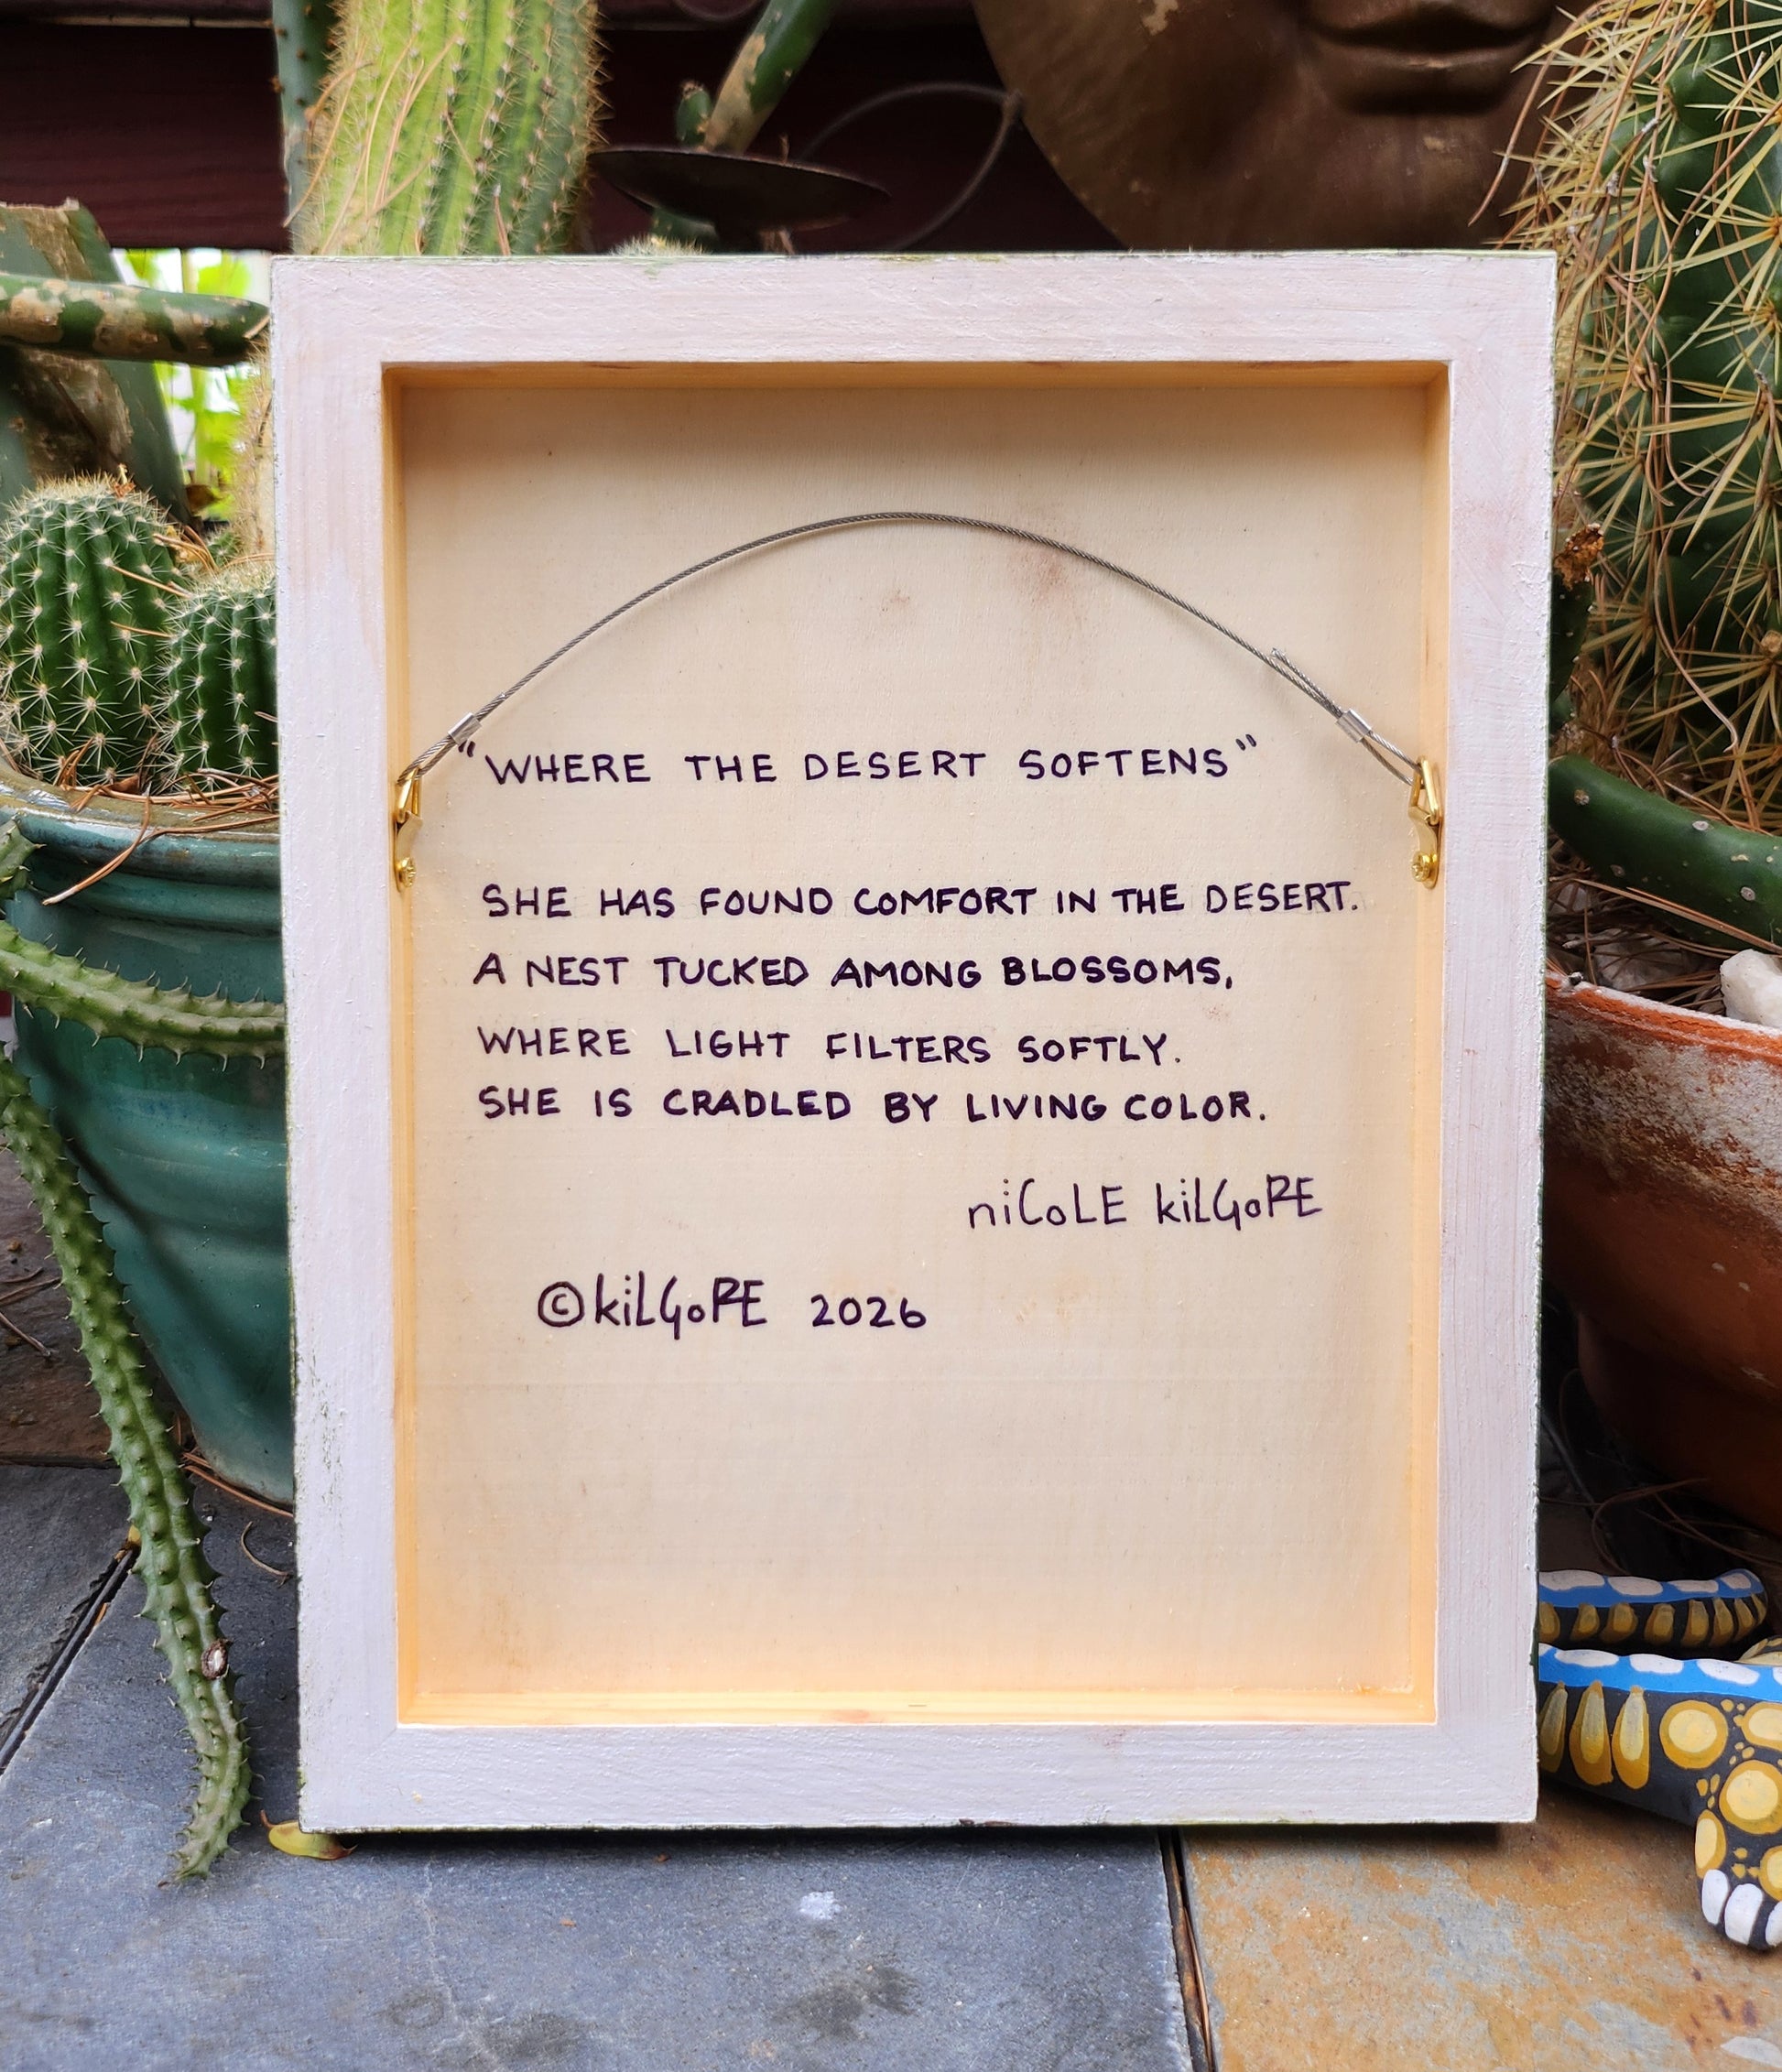 "WHERE THE DESERT SOFTENS"
SHE HAS FOUND COMFORT IN THE DESERT.
A NEST TUCKED AMONG BLOSSOMS,
WHERE LIGHT FILTERS SOFTLY.
SHE IS CRADLED BY LIVING COLOR.
niCoLE kiLGoRE
©kiLGoRE 2026